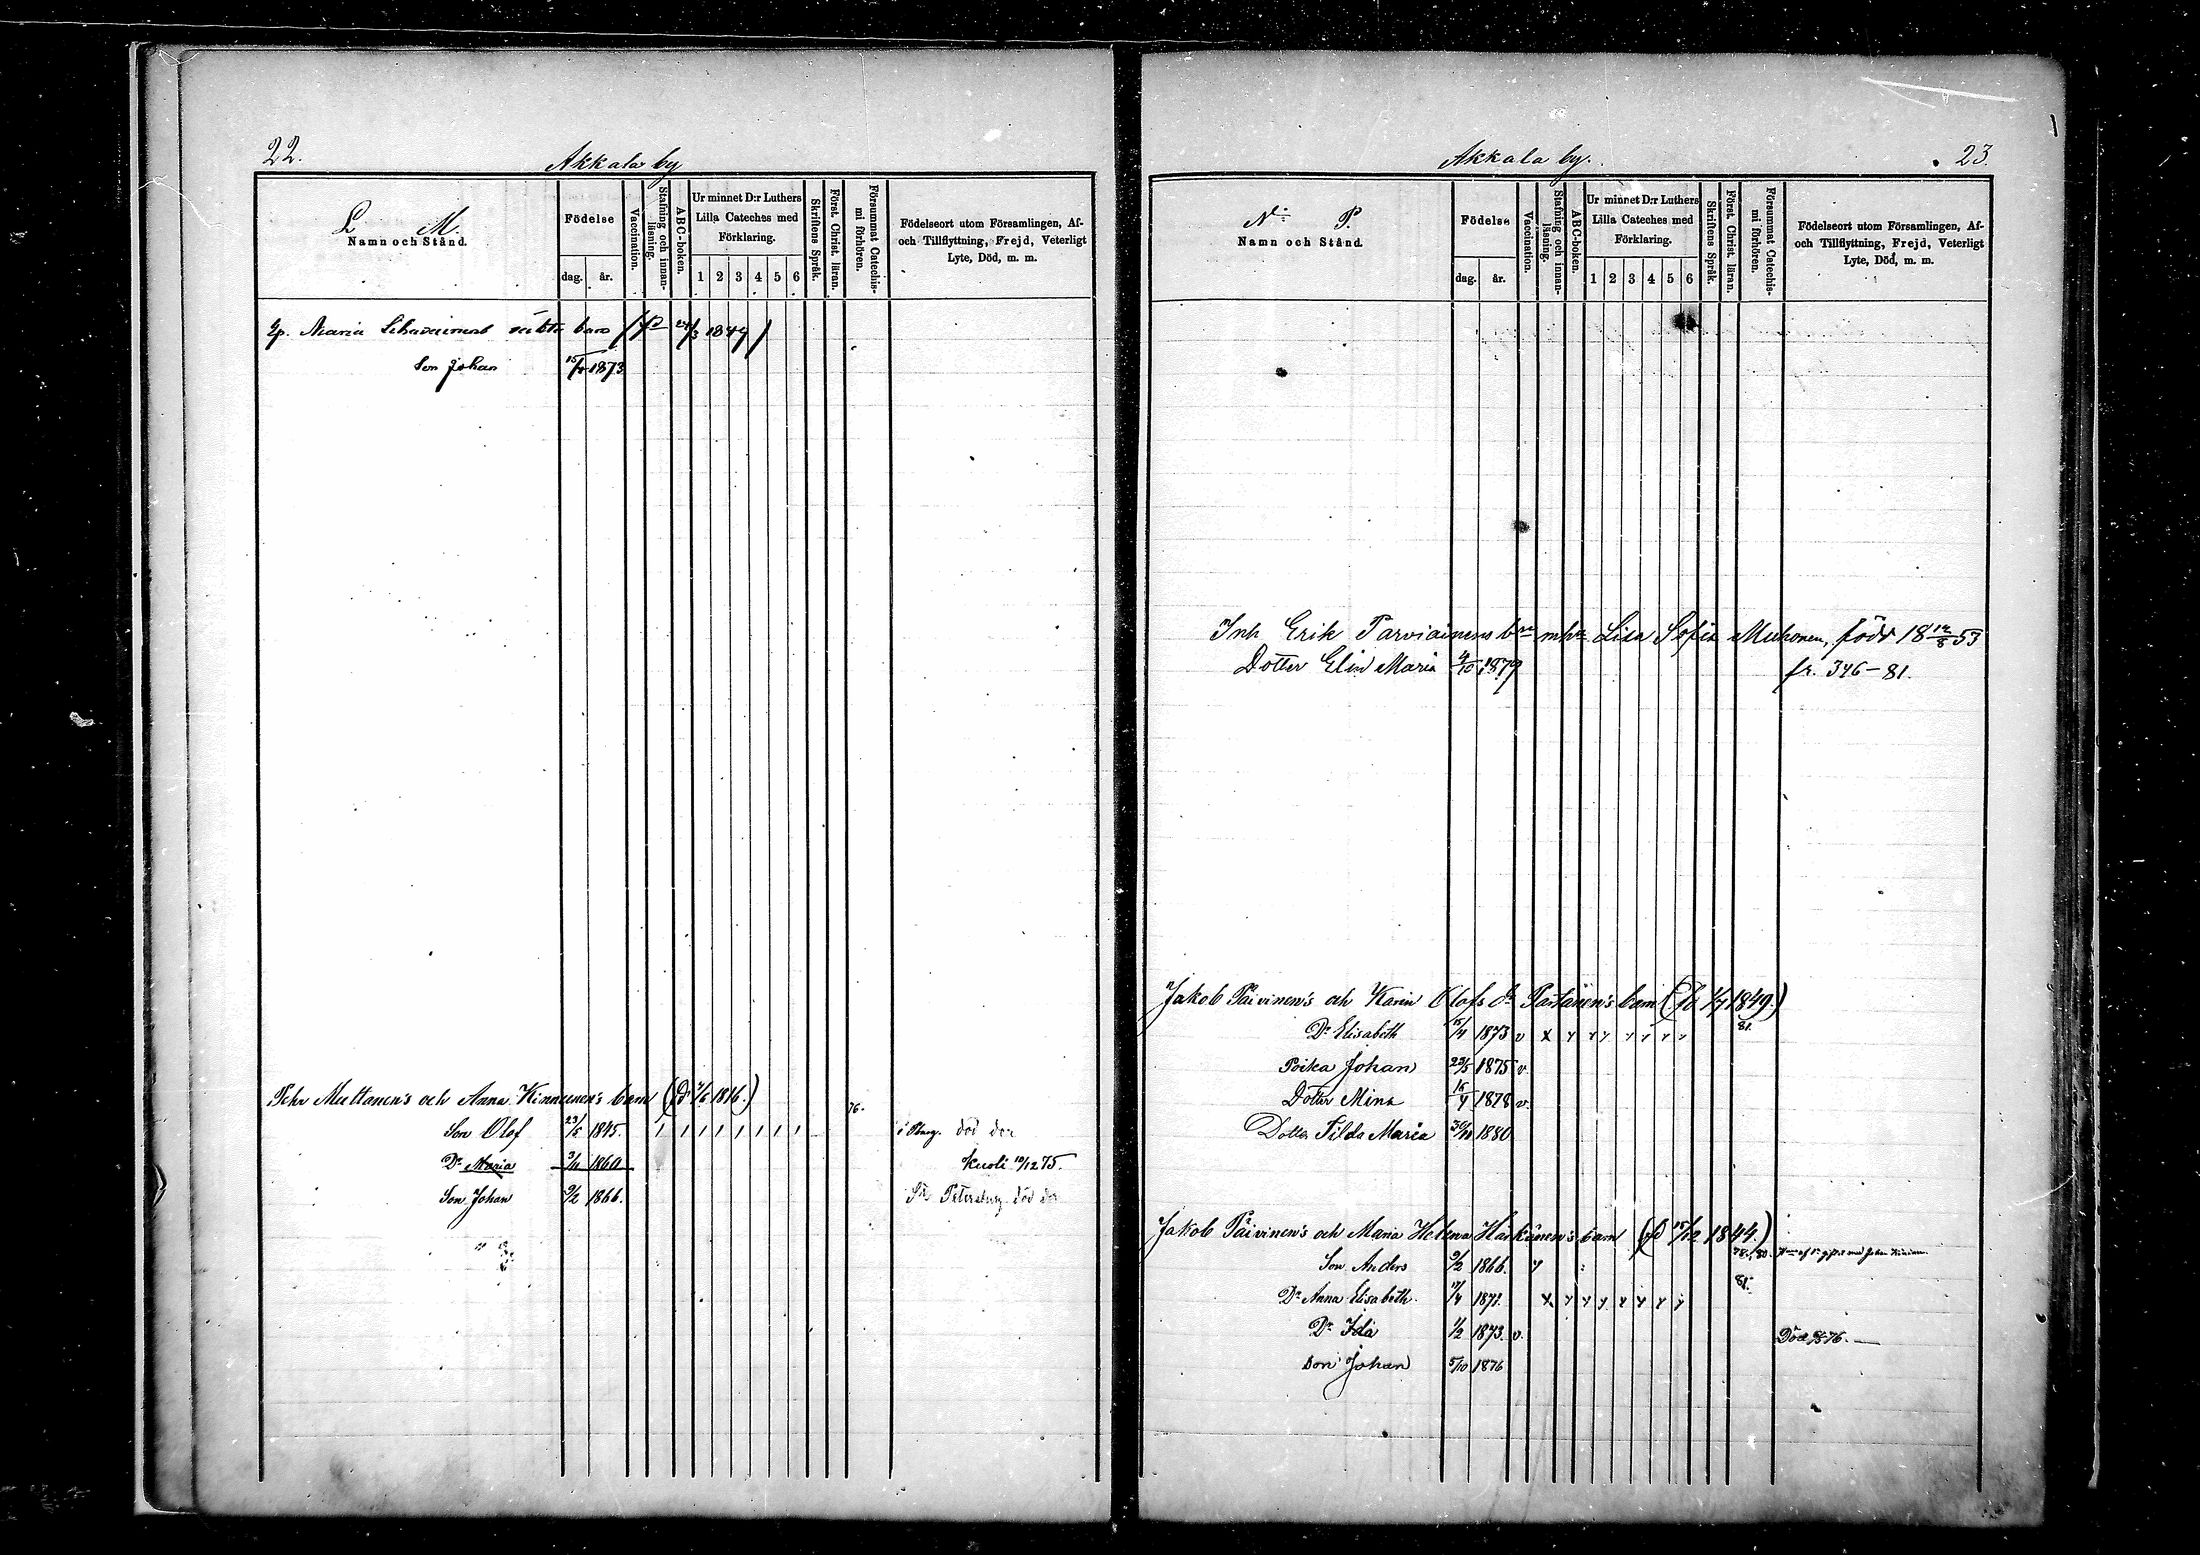 22.
Akkala by
L M.
Namn och Stånd.
Födelse
dag. år.
Vaccination.
Stafning och innanläsning.
ABC-boken.
Ur minnet D:r Luthers Lilla Cateches med Förklaring.
1 2 3 4 5 6
Skriftens Språk.
Först. Christ. läran.
Försummat Catechismi förhören.
Födelseort utom Församlingen, Af- och Tillflyttning, Frejd, Veterligt Lyte, Död, m. m.
Maria barn 1849
Son Johan 1873
Pehr Multanen's och Anna Kinnunen's barn 1816.)
76.
Son Olof 23/5 1845. död der
Dr Maria 3/11 1860 Kuoli 10/12 75.
Son Johan 9/2 1866. St Petersburg död der
Akkala by.
23
N P.
Namn och Stånd.
Födelse
dag. år.
Vaccination.
Stafning och innanläsning.
ABC-boken.
Ur minnet D:r Luthers Lilla Cateches med Förklaring.
1 2 3 4 5 6
Skriftens Språk.
Först. Christ. läran.
Försummat Catechismi förhören.
Födelseort utom Församlingen, Af- och Tillflyttning, Frejd, Veterligt Lyte, Död, m. m.
Inh Erik Parviainens Lisa Sofia Muhonen, född 18 53
Dotter Elin Maria 4/10 1879 fr. 346-81.
Jakob Päivinen's och Karin Olofs dr Partanen's barn 1849.)
81.
Dr Elisabeth 15/4 1873 v
Poika Johan 23/5 1875 v.
Dotter Mina 1878 v.
Dotter Tilda Maria 1880
Jakob Päivinen's och Maria Helena Härkönen's barn 15/12 1844.)
Son Anders 9/2 1866.
81.
Dr Anna Elisabeth 17/4 1871.
Dr Ida 1/2 1873. v. Död 76.
Son Johan 5/10 1876